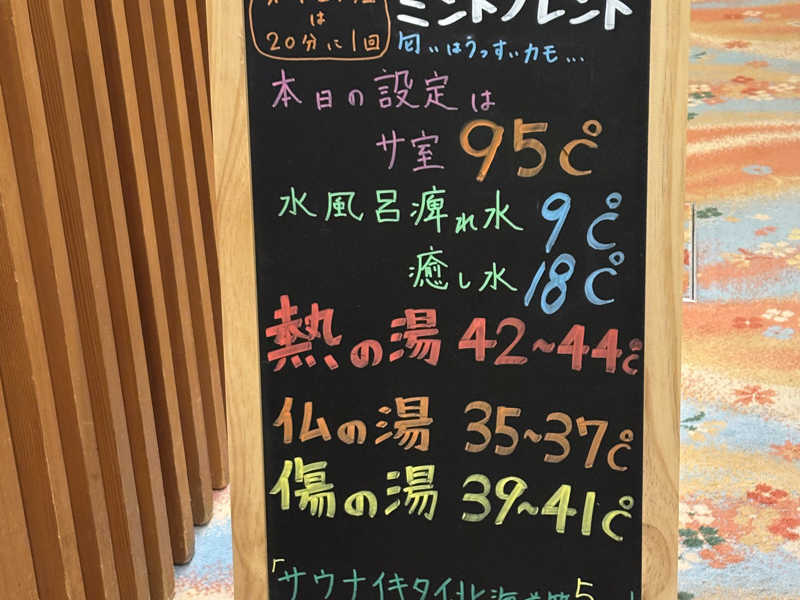 は
20分に1回
ミントブレンド
匂いはうっすぃカモ…
本日の設定は
サ室 95℃
水風呂痺れ水 9℃
癒し水 18℃
熱の湯 42~44℃
仏の湯 35~37℃
傷の湯 39~41℃
「サウナイキタイ北海道